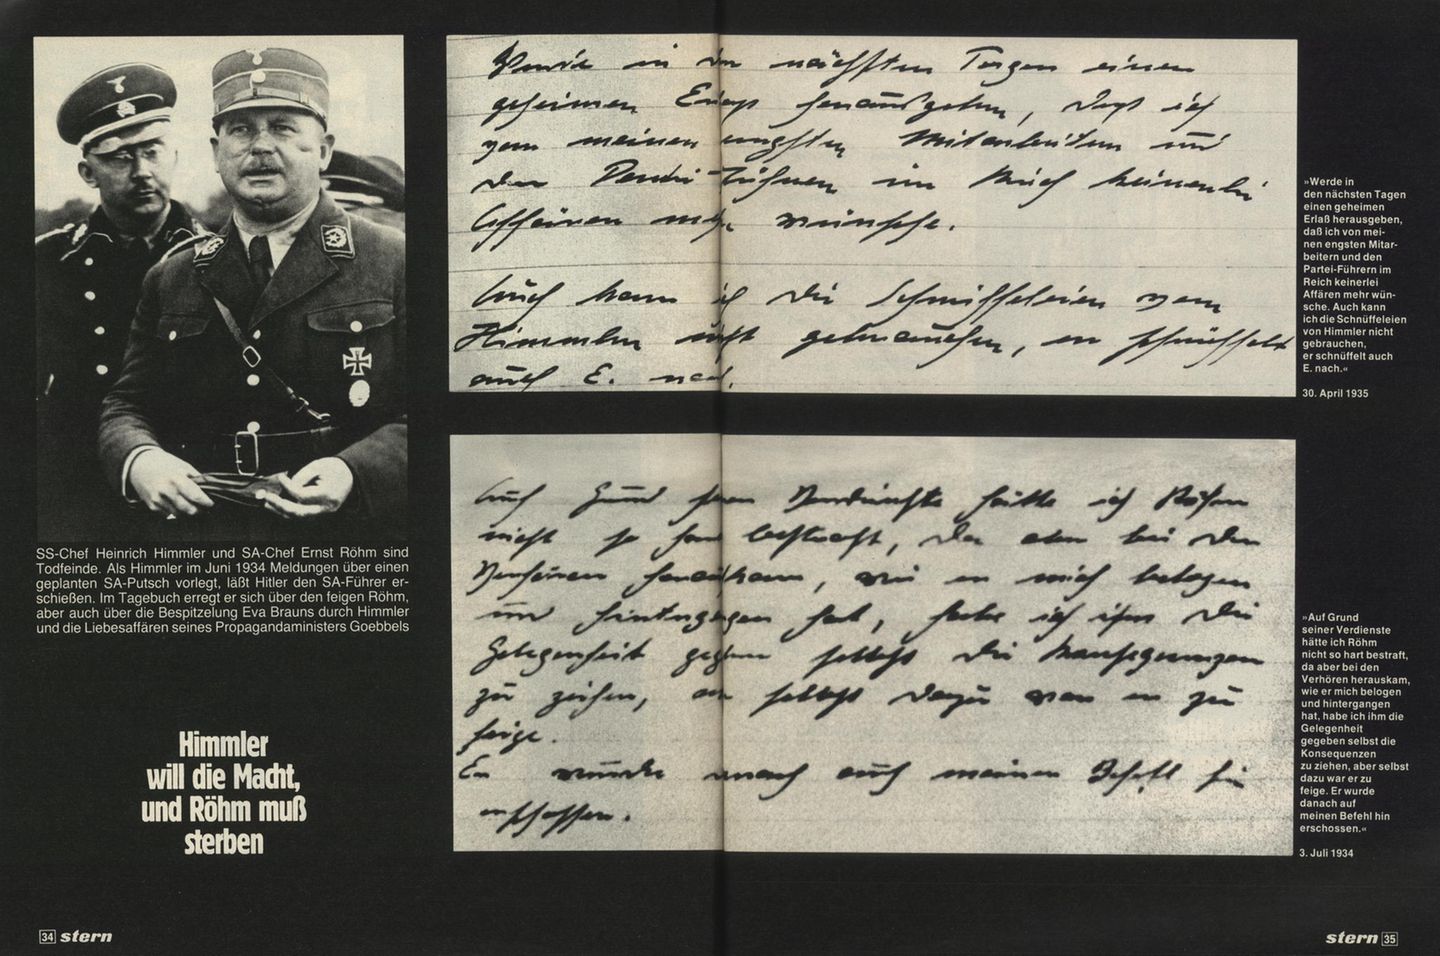 SS-Chef Heinrich Himmler und SA-Chef Ernst Röhm sind
Todfeinde. Als Himmler im Juni 1934 Meldungen über einen
geplanten SA-Putsch vorlegt, läßt Hitler den SA-Führer er-
schießen. Im Tagebuch erregt er sich über den feigen Röhm,
aber auch über die Bespitzelung Eva Brauns durch Himmler
und die Liebesaffären seines Propagandaministers Goebbels
Himmler
will die Macht,
und Röhm muß
sterben
34 stern
Werde in den nächsten Tagen einen
geheimen Erlaß herausgeben, daß ich
von meinen engsten Mitarbeitern und
den Partei-Führern im Reich keinerlei
Affären mehr wünsche.
Auch kann ich die Schnüffeleien von
Himmler nicht gebrauchen, er schnüffelt
auch E. nach.
»Werde in
den nächsten Tagen
einen geheimen
Erlaß herausgeben,
daß ich von mei-
nen engsten Mitar-
beitern und den
Partei-Führern im
Reich keinerlei
Affären mehr wün-
sche. Auch kann
ich die Schnüffeleien
von Himmler nicht
gebrauchen,
er schnüffelt auch
E. nach.«
30. April 1935
Auf Grund seiner Verdienste hätte ich Röhm
nicht so hart bestraft, da aber bei den
Verhören herauskam, wie er mich belogen
und hintergangen hat, habe ich ihm die
Gelegenheit gegeben selbst die Konsequenzen
zu ziehen, aber selbst dazu war er zu
feige.
Er wurde danach auf meinen Befehl hin
erschossen.
»Auf Grund
seiner Verdienste
hätte ich Röhm
nicht so hart bestraft,
da aber bei den
Verhören herauskam,
wie er mich belogen
und hintergangen
hat, habe ich ihm die
Gelegenheit
gegeben selbst die
Konsequenzen
zu ziehen, aber selbst
dazu war er zu
feige. Er wurde
danach auf
meinen Befehl hin
erschossen.«
3. Juli 1934
stern 35